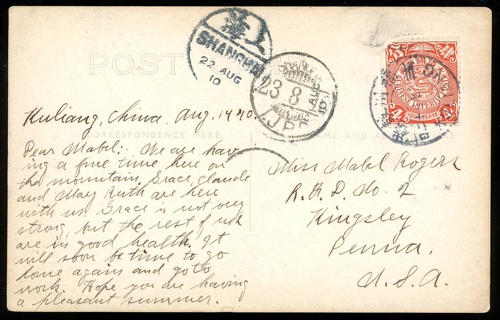 POST
上海
SHANGHAI
22 AUG
10
23 8
I.J.P.O.
Kuliang, China, Aug. 14 '10.
CORRESPONDENCE HERE
NAME AND ADDRESS
Dear Mabel:- We are hav-
ing a fine time here on
the mountain. Grace, Claude
and Mary Ruth are here
with us. Grace is not very
strong, but the rest of us
are in good health. It
will soon be time to go
home again and go to
work. Hope you are having
a pleasant summer.
Miss Mabel Rogers
R.F.D. No. 2
Kingsley
Penna.
U.S.A.